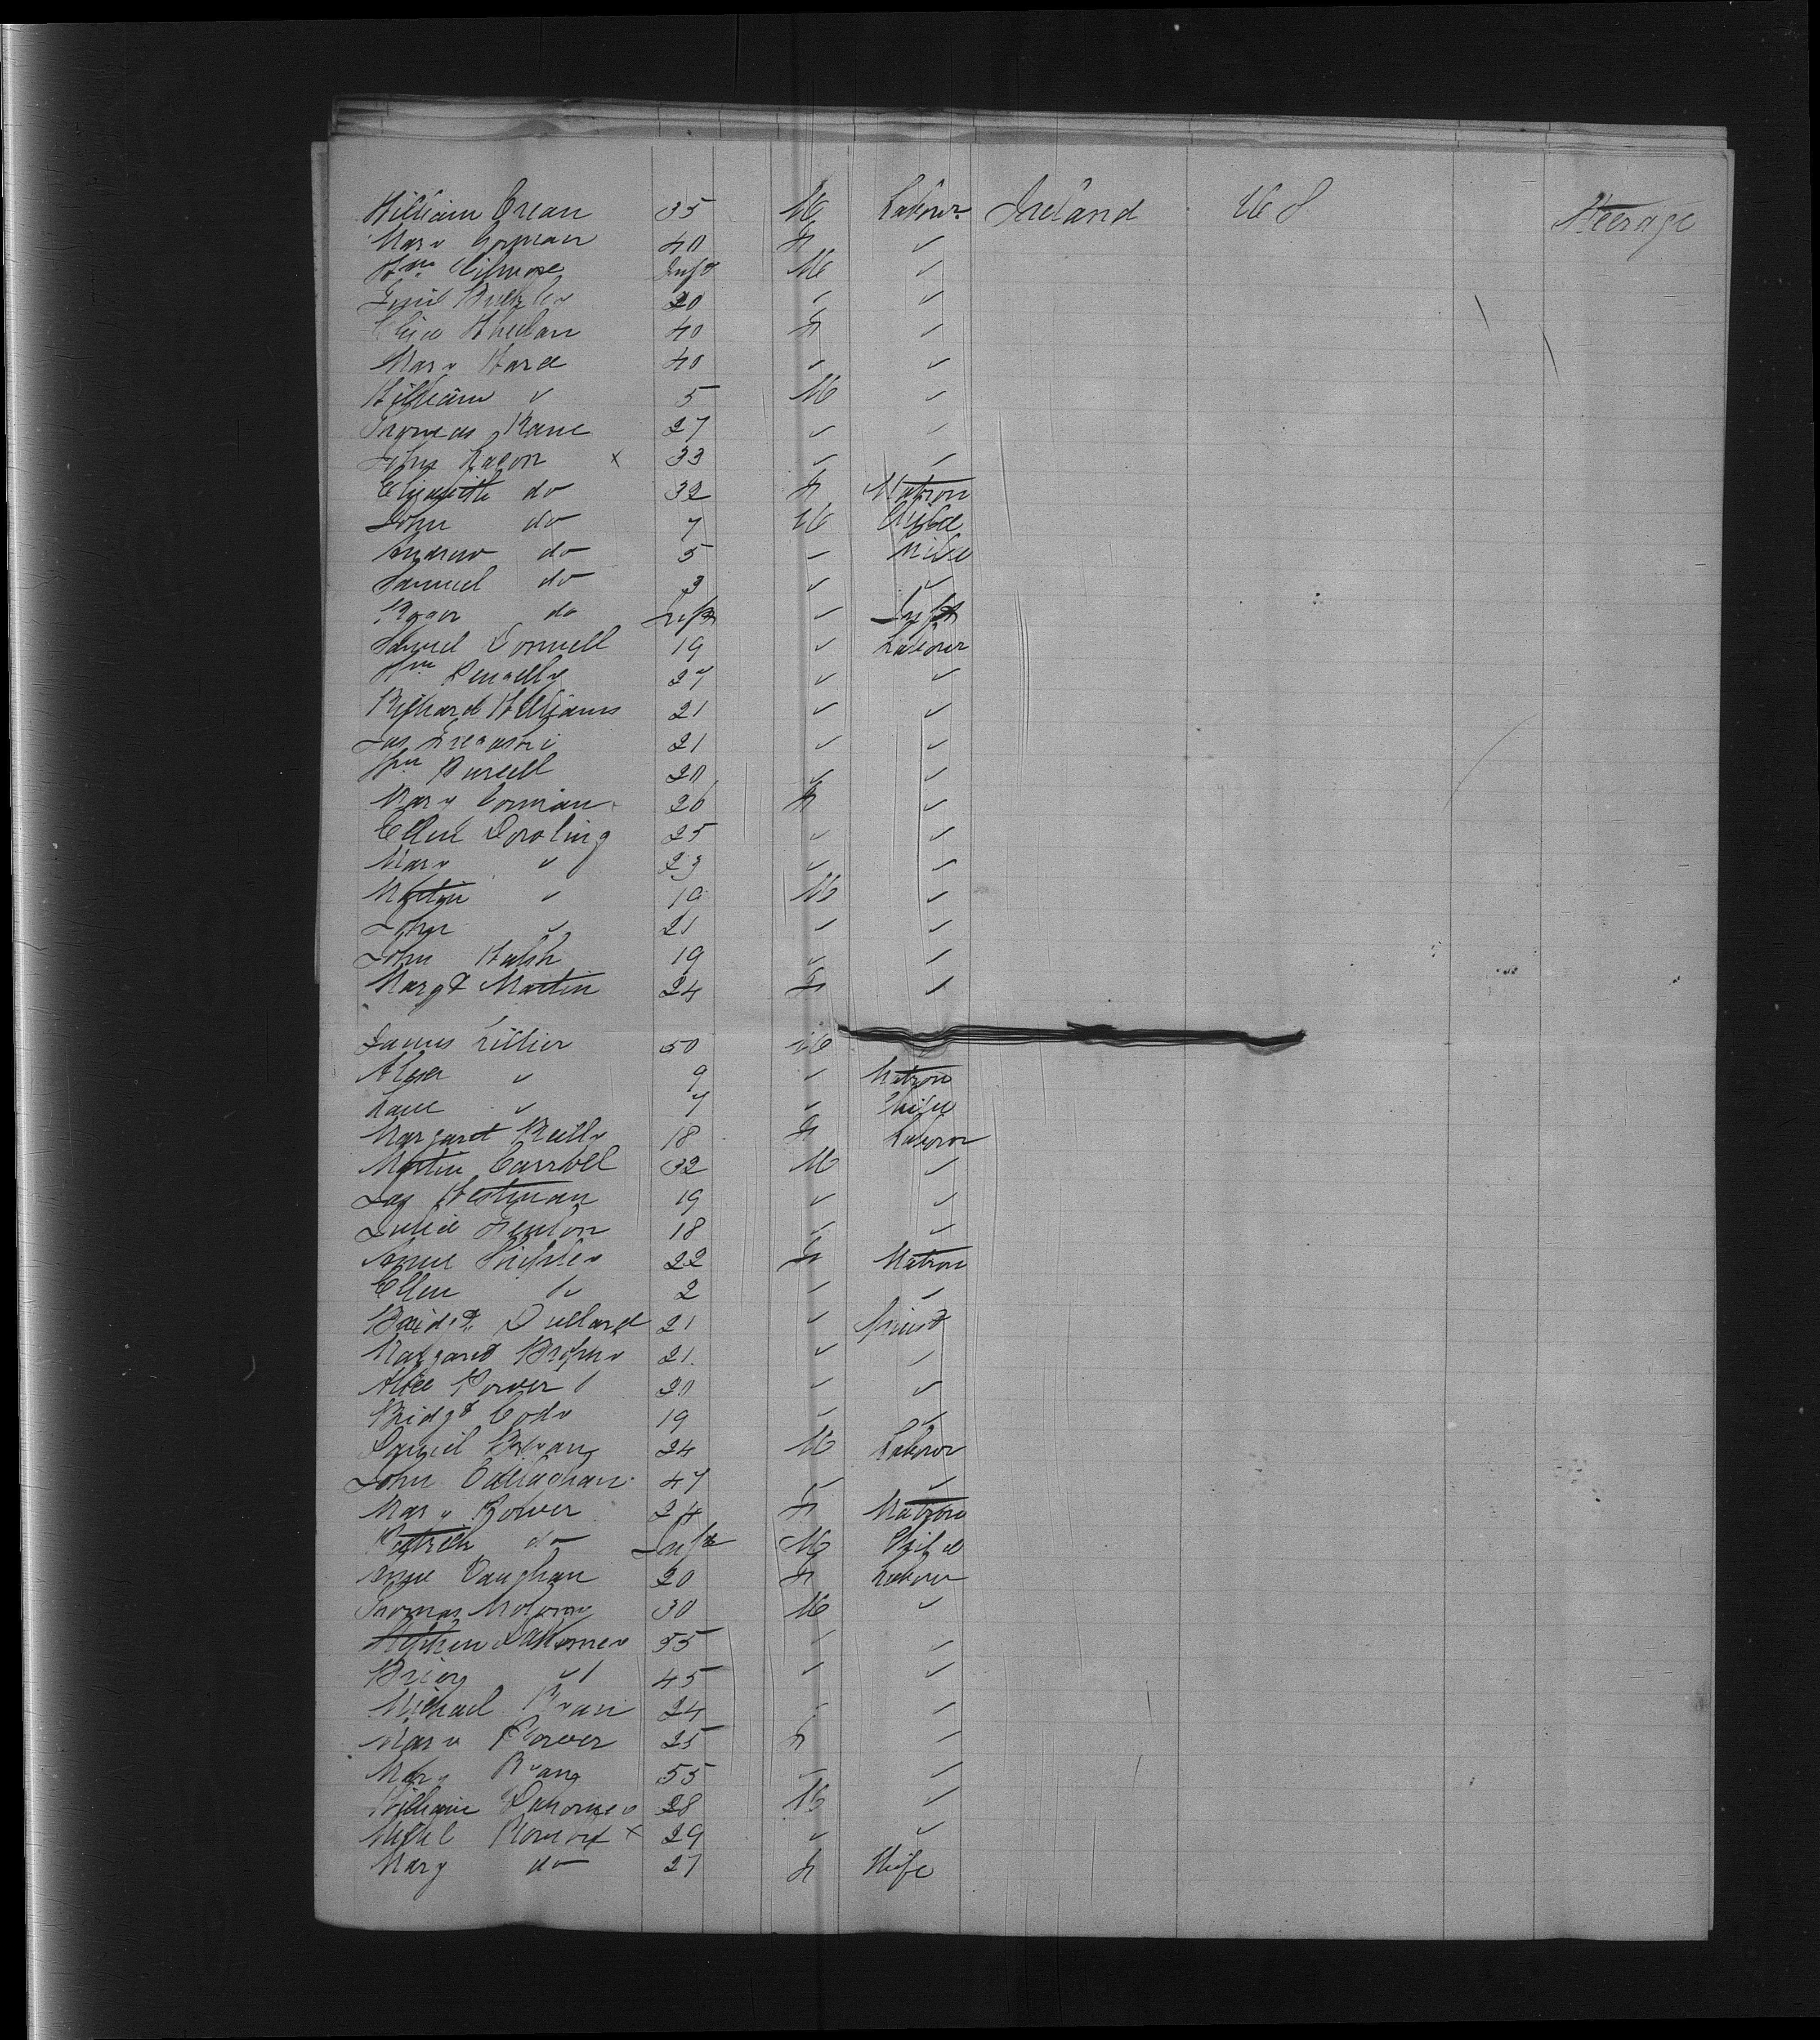 William Crean 35 M Labour Ireland U S Steerage
Mary Gorman 40 F ✓
Wm Gilmore Inft M ✓
20 ✓ ✓
Whelan 40 F ✓
Mary Ward 40 ✓ ✓
William ✓ 5 M ✓
Thomas Kane 27 ✓ ✓
John x 33 ✓ ✓
Elizabeth do 32 F Matron
John do 7 M Child
Andrew do 5 ✓ Child
Samuel do 3 ✓ ✓
Roger do Inft ✓ Inft
Samuel Donnell 19 ✓ Labour
Wm 27 ✓ ✓
Richard Williams 21 ✓ ✓
Jas 21 ✓ ✓
Wm Purcell 20 ✓ ✓
Mary Gorman 26 F ✓
Ellen Dowling 25 ✓ ✓
Mary ✓ 23 ✓ ✓
Martin ✓ 19 M ✓
John ✓ 21 ✓ ✓
John Walsh 19 ✓ ✓
Margt Martin 24 F ✓
James Lillier 50 M
✓ 9 ✓ Matron
Jane ✓ 7 ✓ Child
Margaret Reilly 18 F Labour
Martin Carroll 32 M ✓
Jas Westman 19 ✓ ✓
Julia 18 ✓ ✓
Anne 22 F Matron
Ellen do 2 ✓ ✓
Bridgt Dullard 21 ✓ Spinst
Margaret Brophy 21 ✓ ✓
Alice Power 20 ✓ ✓
Bridgt Cody 19 ✓ ✓
Daniel Ryan 24 M Labour
John Callaghan 47 ✓ ✓
Mary Power 24 F Matron
Patrick do Inft M Child
Anne Vaughan 20 F Labour
Thomas Molony 30 M ✓
Stephen 55 ✓ ✓
✓ 45 ✓ ✓
Michael Ryan 24 ✓ ✓
Mary Power 25 F ✓
Mary Ryan 55 ✓ ✓
William 28 M ✓
Michl x 29 ✓ ✓
Mary do 27 F Wife